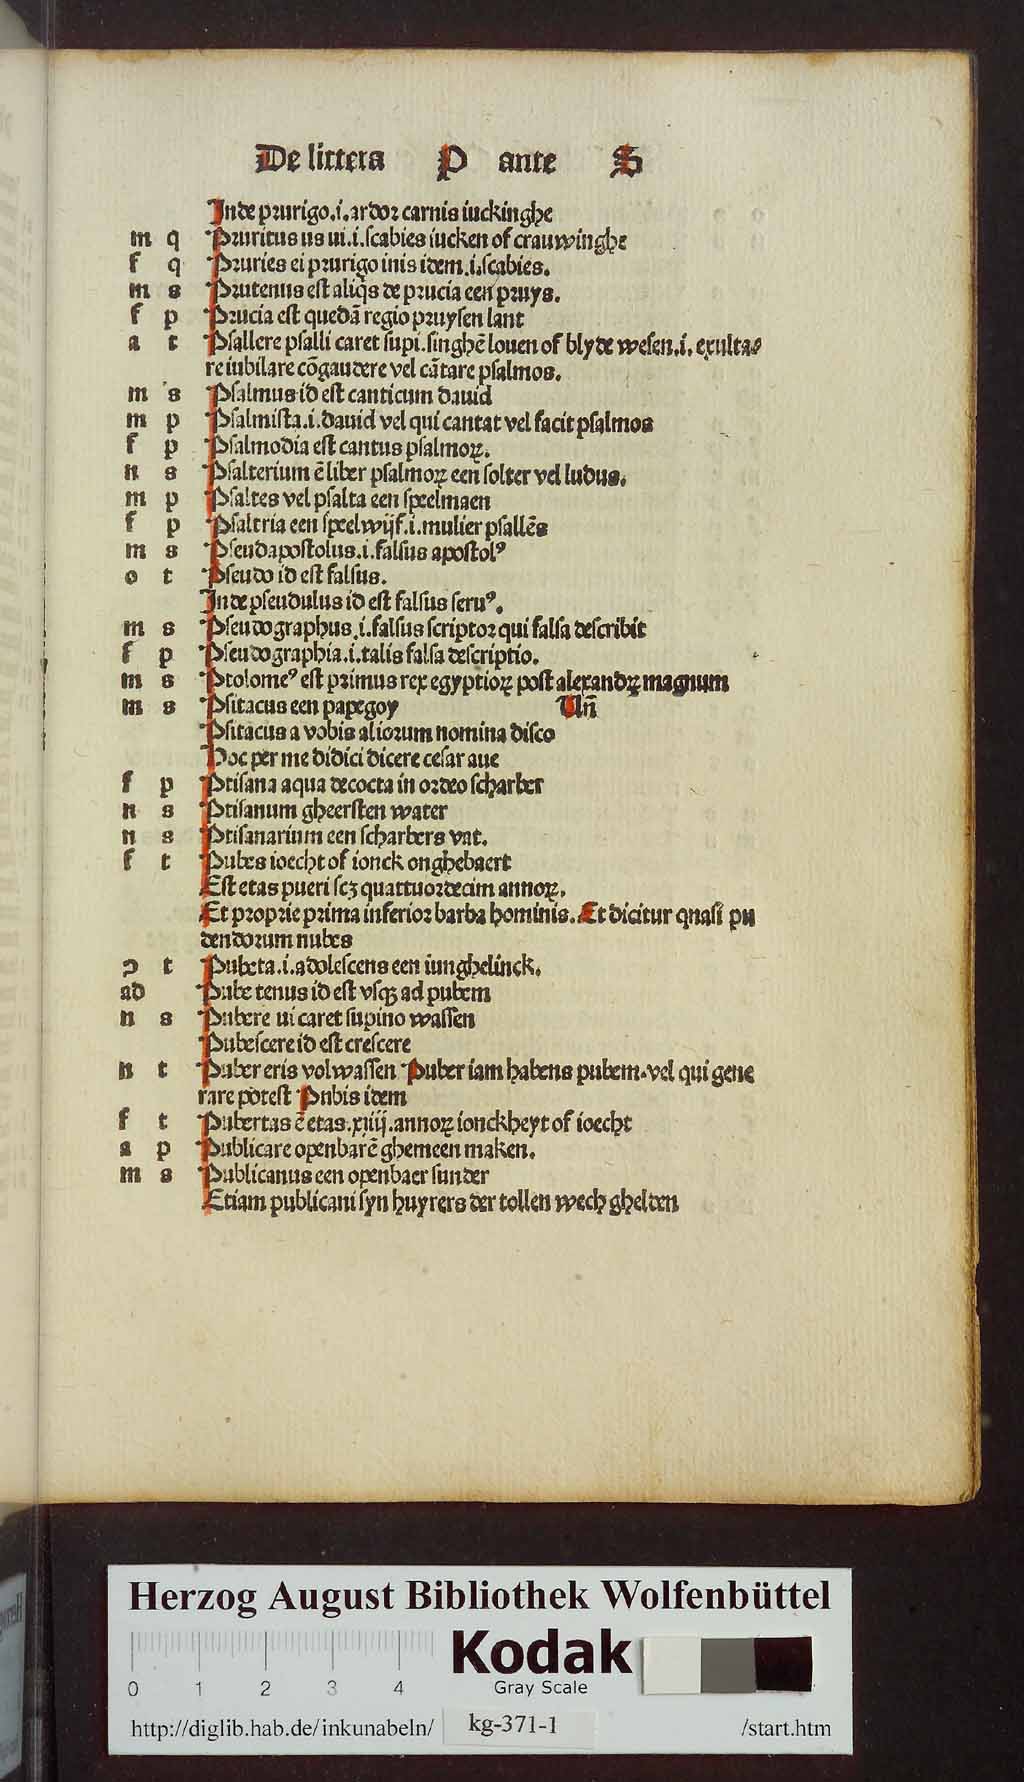 De littera P ante S
Inde prurigo.i.ardor carnis iuckinghe
m q Pruritus us ui.i.scabies iucken of crauwinghe
f q Pruries ei prurigo inis idem.i.scabies.
m s Prutenus est aliq̃s de prucia een pruys.
f p Prucia est quedã regio pruysen lant
a t Psallere psalli caret supi.singhẽ louen of blyde wesen.i. exulta⸗
re iubilare cõgaudere vel cãtare psalmos.
m s Psalmus id est canticum dauid
m p Psalmista.i.dauid vel qui cantat vel facit psalmos
f p Psalmodia est cantus psalmoꝝ.
n s Psalterium ẽ liber psalmoꝝ een solter vel ludus.
m p Psaltes vel psalta een speelmaen
f p Psaltria een speelwijf.i.mulier psallẽs
m s Pseudapostolus.i.falsus apostolꝰ
o t Pseudo id est falsus.
Inde pseudulus id est falsus seruꝰ.
m s Pseudographus.i.falsus scriptor qui falsa describit
f p Pseudographia.i.talis falsa descriptio.
m s Ptolomeꝰ est primus rex egyptioꝝ post alexandꝝ magnum
m s Psitacus een papegoy Un̄
Psitacus a vobis aliorum nomina disco
Hoc per me didici dicere cesar aue
f p Ptisana aqua decocta in ordeo scharber
n s Ptisanum gheersten water
n s Ptisanarium een scharbers vat.
f t Pubes ioecht of ionck onghebaert
Est etas pueri scꝫ quattuordecim annoꝝ.
Et proprie prima inferior barba hominis. Et dicitur quasi pu
dendorum nubes
ɔ t Pubeta.i.adolescens een iunghelinck.
ad Pube tenus id est vsqꝫ ad pubem
n s Pubere ui caret supino wassen
Pubescere id est crescere
n t Puber eris volwassen Puber iam habens pubem.vel qui gene
rare potest Pubis idem
f t Pubertas ẽ etas.xiiij.annoꝝ ionckheyt of ioecht
a p Publicare openbarẽ ghemeen maken.
m s Publicanus een openbaer sunder
Etiam publicani syn huyrers der tollen wech ghelden
Herzog August Bibliothek Wolfenbüttel
Kodak
Gray Scale
0 1 2 3 4
http://diglib.hab.de/inkunabeln/ kg-371-1 /start.htm